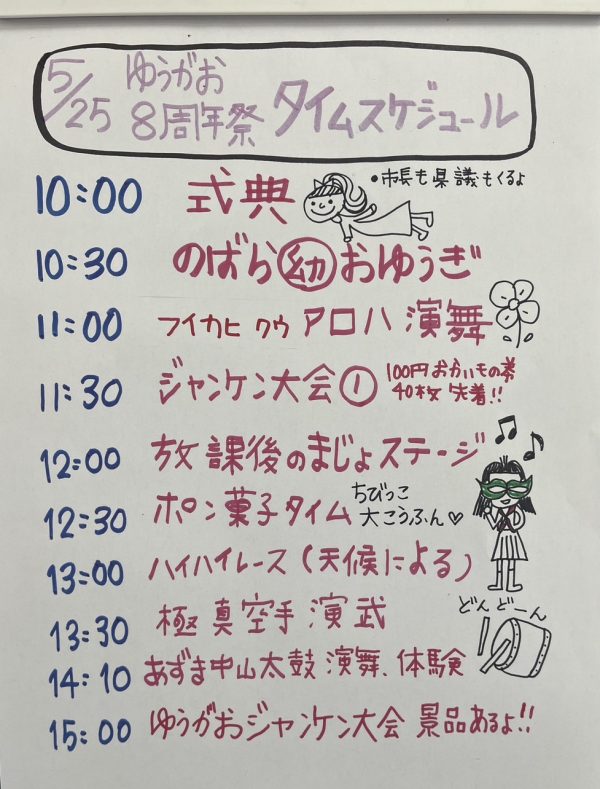 5/25 ゆうがお
8周年祭 タイムスケジュール
10:00 式典 •市長も県議もくるよ
10:30 のばら㊛おゆうぎ
11:00 フイカヒ クウ アロハ 演舞
11:30 ジャンケン大会① 100円おかいもの券
40枚 先着!!
12:00 放課後のまじょステージ
12:30 ポン菓子タイム ちびっこ
大こうふん♡
13:00 ハイハイレース(天候による)
13:30 極真空手演武
どんどーん
14:10 あずま中山太鼓 演舞、体験
15:00 ゆうがおジャンケン大会 景品あるよ!!